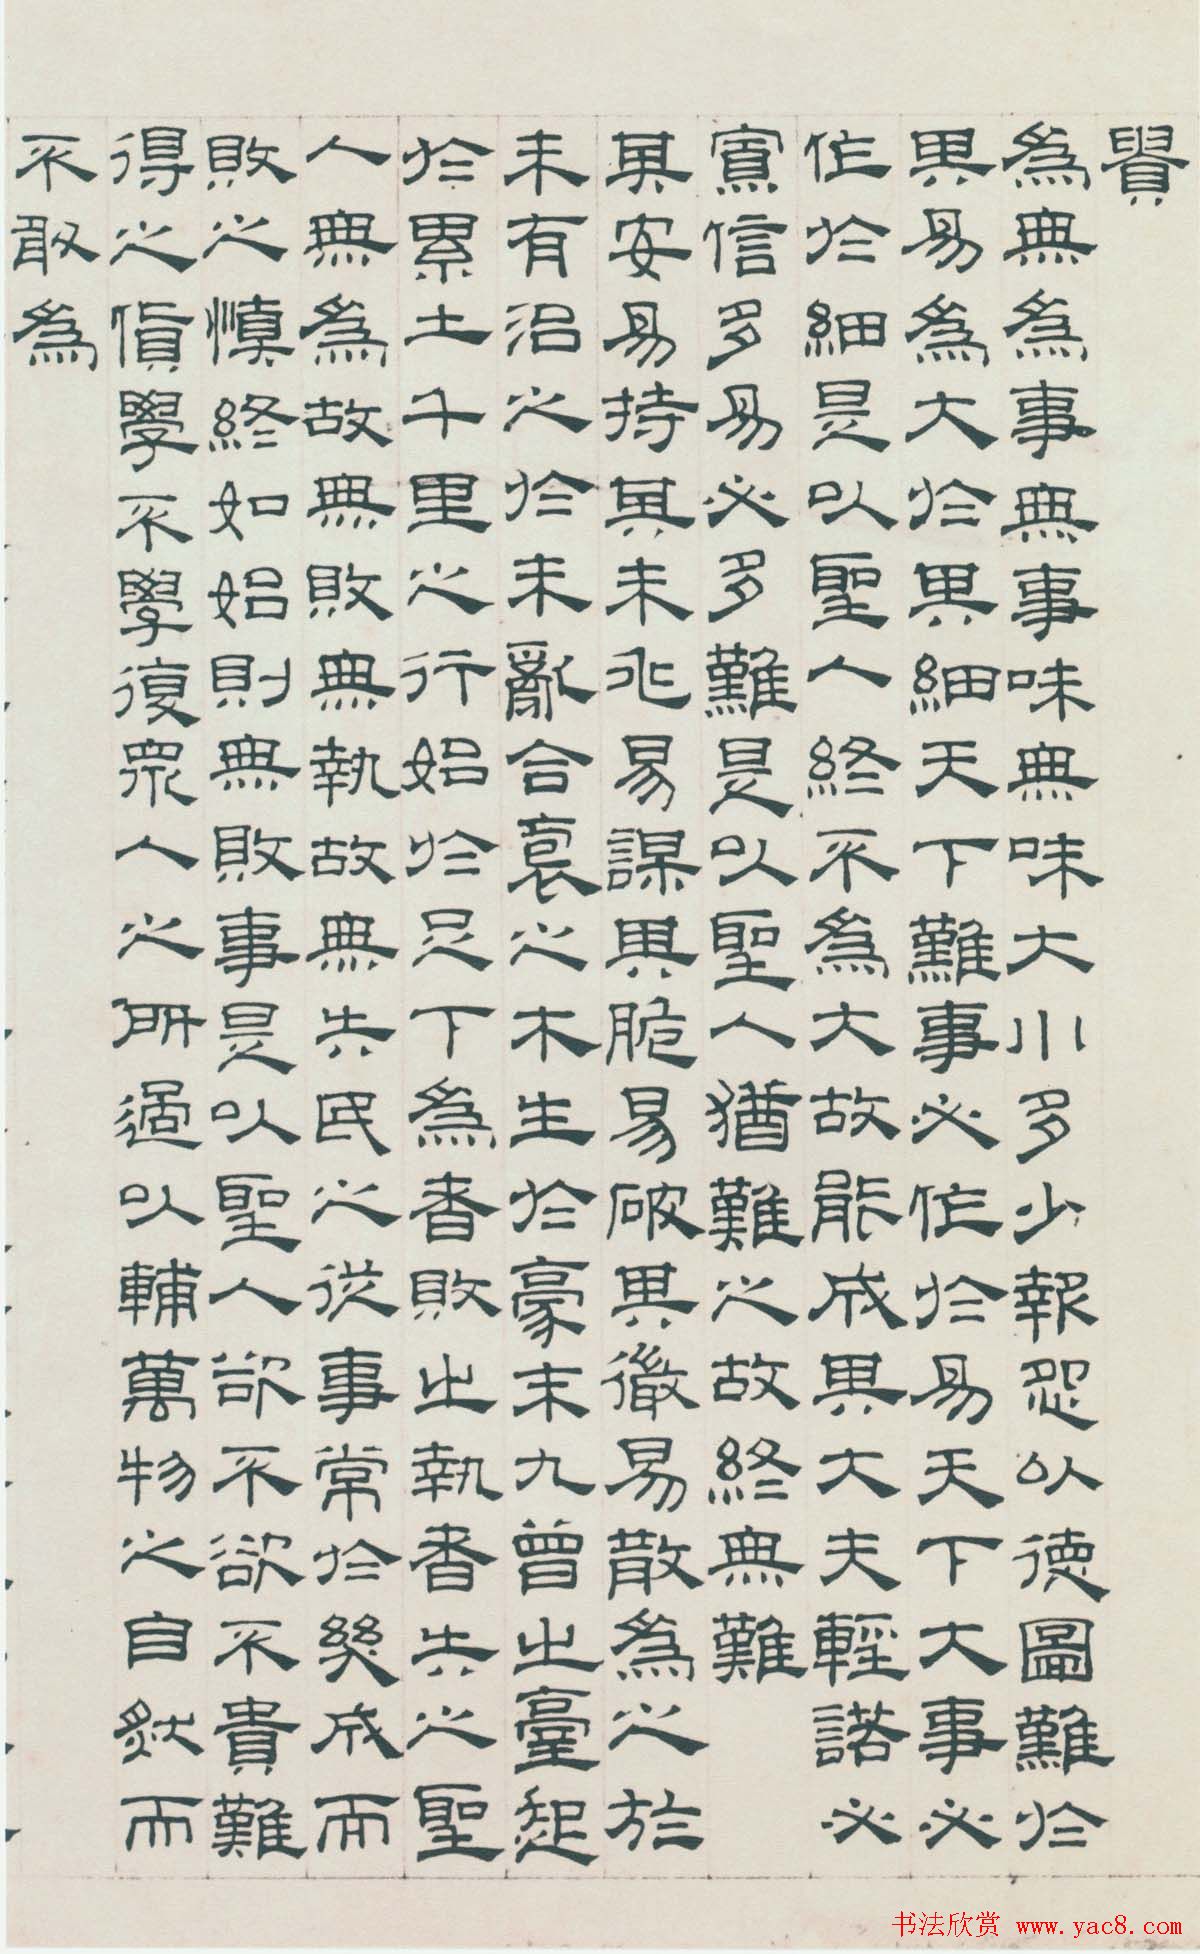 貴
為無為事無事味無味大小多少報怨以德圖難於
其易為大於其細天下難事必作於易天下大事必
作於細是以聖人終不為大故能成其大夫輕諾必
寡信多易必多難是以聖人猶難之故終無難
其安易持其未兆易謀其脆易破其微易散為之於
未有治之於未亂合袌之木生於豪末九曾之臺起
於累土千里之行始於足下為者敗之執者失之聖
人無為故無敗無執故無失民之從事常於幾成而
敗之慎終如始則無敗事是以聖人欲不欲不貴難
得之貨學不學復眾人之所過以輔萬物之自然而
不敢為
书法欣赏 www.yac8.com